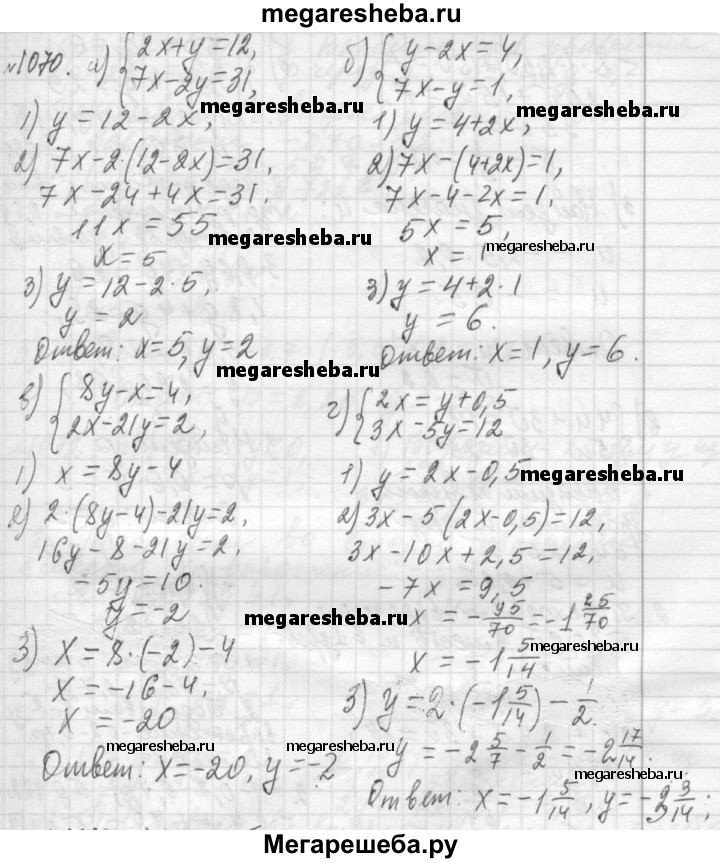 megaresheba.ru
№1070. а) { 2x+y=12,
7x-2y=31,
1) y=12-2x,
megaresheba.ru
2) 7x-2·(12-2x)=31,
7x-24+4x=31.
11x=55
megaresheba.ru
x=5
3) y=12-2·5,
y=2
Ответ: x=5, y=2
б) { y-2x=4,
7x-y=1,
megaresheba.ru
1) y=4+2x,
2) 7x-(4+2x)=1,
7x-4-2x=1.
5x=5,
megaresheba.ru
x=1
3) y=4+2·1
y=6.
Ответ: x=1, y=6.
megaresheba.ru
в) { 8y-x=4,
2x-21y=2,
1) x=8y-4
2) 2·(8y-4)-21y=2,
16y-8-21y=2,
-5y=10.
y=-2
megaresheba.ru
3) x=8·(-2)-4
x=-16-4,
x=-20
megaresheba.ru
Ответ: x=-20, y=-2
г) { 2x=y+0,5
3x-5y=12
1) y=2x-0,5
megaresheba.ru
2) 3x-5(2x-0,5)=12,
3x-10x+2,5=12,
-7x=9,5
x=-95/70=-1 25/70
megaresheba.ru
x=-1 5/14
3) y=2·(-1 5/14)-1/2.
megaresheba.ru
y=-2 5/7-1/2=-2 17/14.
megaresheba.ru
Ответ: x=-1 5/14, y=-3 3/14;
Мегарешеба.ру